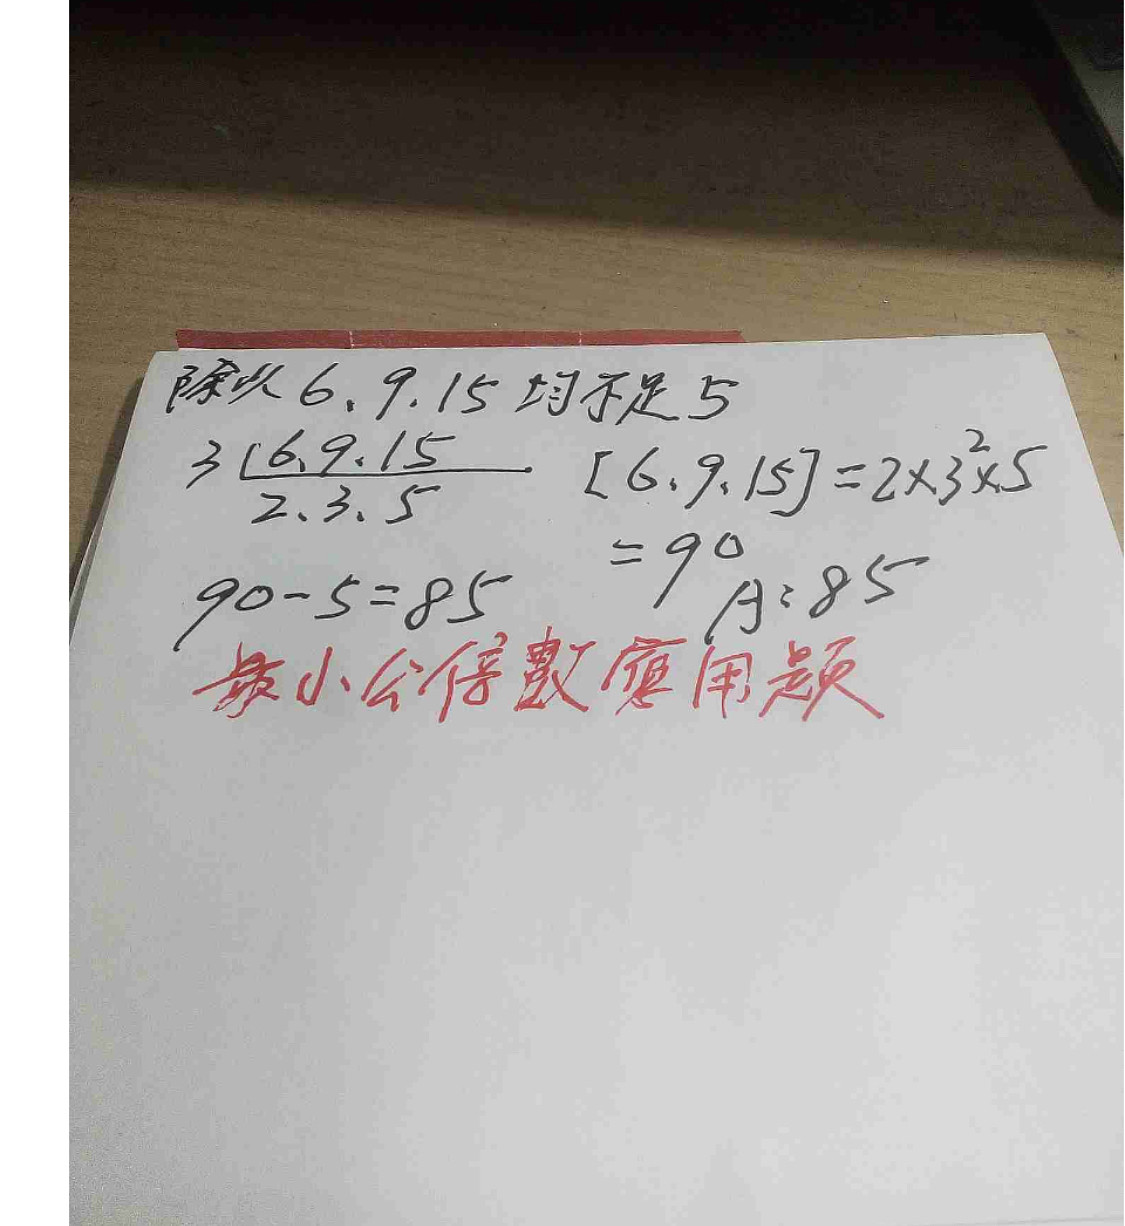 除以6、9、15均不足5
3 6、9、15
2、3、5
[6、9、15]=2×3²×5
=90
90-5=85
A:85
最小公倍數應用題